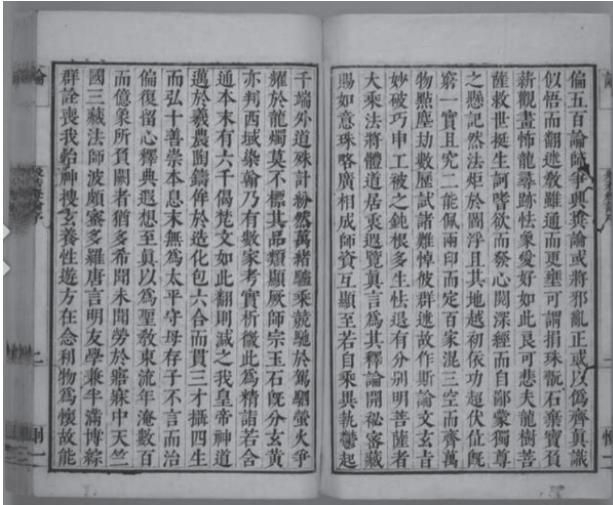 偏五百論師爭興異論或將邪亂正或以偽齊真識
似悟而翻迷教雖通而更壅可謂捐珠翫石棄寶負
薪觀畫怖龍尋跡怯象愛好如此良可悲夫龍樹菩
薩救世挺生訶嗜欲而發心閱深經而自鄙蒙獨尊
之懸記然法炬於閻浮且其地越初依功超伏位旣
窮一實且究二能佩兩印而定百家混三空而齊萬
物點塵劫數歷試諸難悼彼群迷故作斯論文玄旨
妙破巧申工被之鈍根多生怯退有分別明菩薩者
大乘法將體道居衷遐覽真言爲其釋論開祕密藏
賜如意珠略廣相成師資互顯至若自乘異執鬱起
千端外道殊計紛然萬緒驢乘競馳於駕駟螢火爭
耀於龍燭莫不標其品類顯厥師宗玉石旣分玄黃
亦判西域染翰乃有數家考實析微此爲精詣若含
通本末有六千偈梵文如此翻則減之我皇帝神道
邁於羲農陶鑄侔於造化包六合而貫三才攝四生
而弘十善崇本息末無爲太平守母存子不言而治
偏復留心釋典遐想至真以爲聖教東流年淹數百
而億象所負闕者猶多希聞未聞勞於寤寐中天竺
國三藏法師波頗蜜多羅唐言明友學兼半滿博綜
群詮喪我怡神搜玄養性遊方在念利物爲懷故能